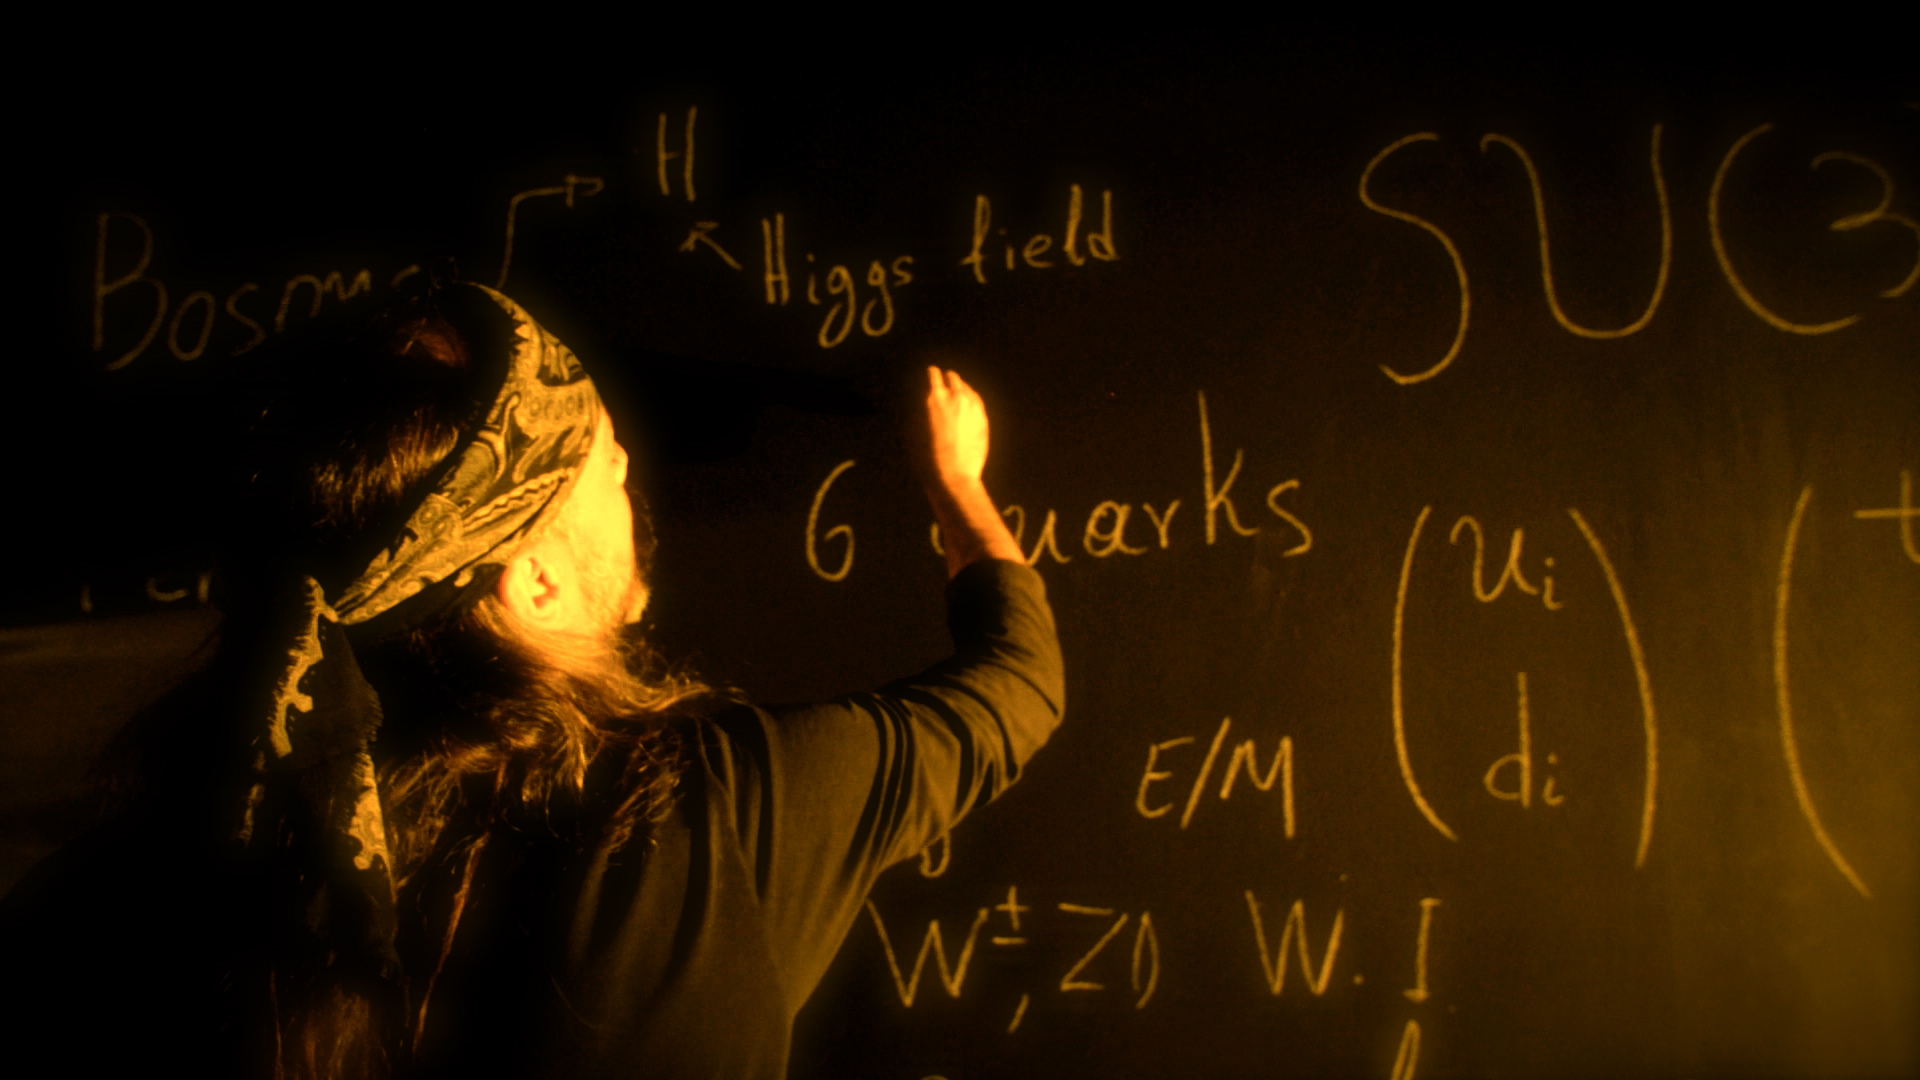 H
Higgs field
SU(3
6 quarks
u i
d i
t
E/M
W±, Z0 W. I